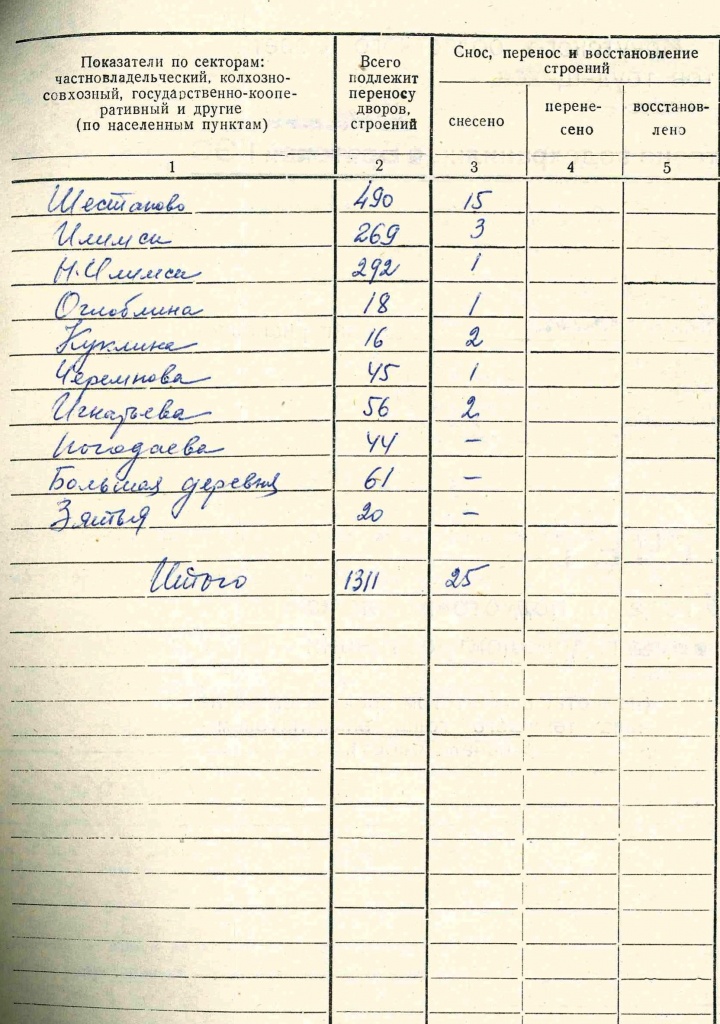 Показатели по секторам:
частновладельческий, колхозно-
совхозный, государственно-коопе-
ративный и другие
(по населенным пунктам)
Всего
подлежит
переносу
дворов,
строений
Снос, перенос и восстановление
строений
снесено
перене-
сено
восстанов-
лено
1 2 3 4 5
Шестаково 490 15
Илимск 269 3
Н.Илимск 292 1
Оглоблина 18 1
Куклина 16 2
Черемнова 45 1
Игнатьева 56 2
Погодаева 44 –
Большая деревня 61 –
Зятья 20 –
Итого 1311 25